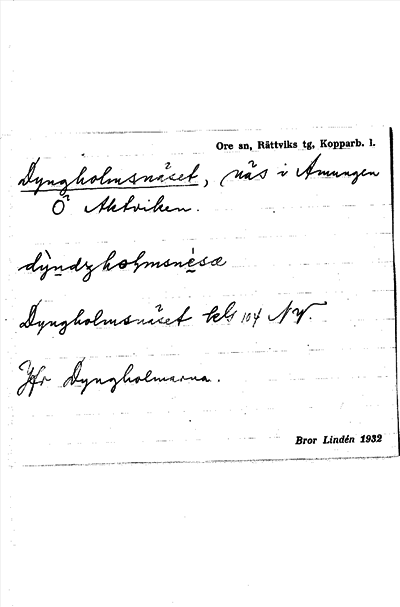 Ore sn, Rättviks tg, Kopparb. l.
Dyngholmsnäset, näs i Amungen
Ö Aktviken.
dỳndzholmsnèsa
Dyngholmsnäset kls 104 NV.
Jfr Dyngholmarna.
Bror Lindén 1932